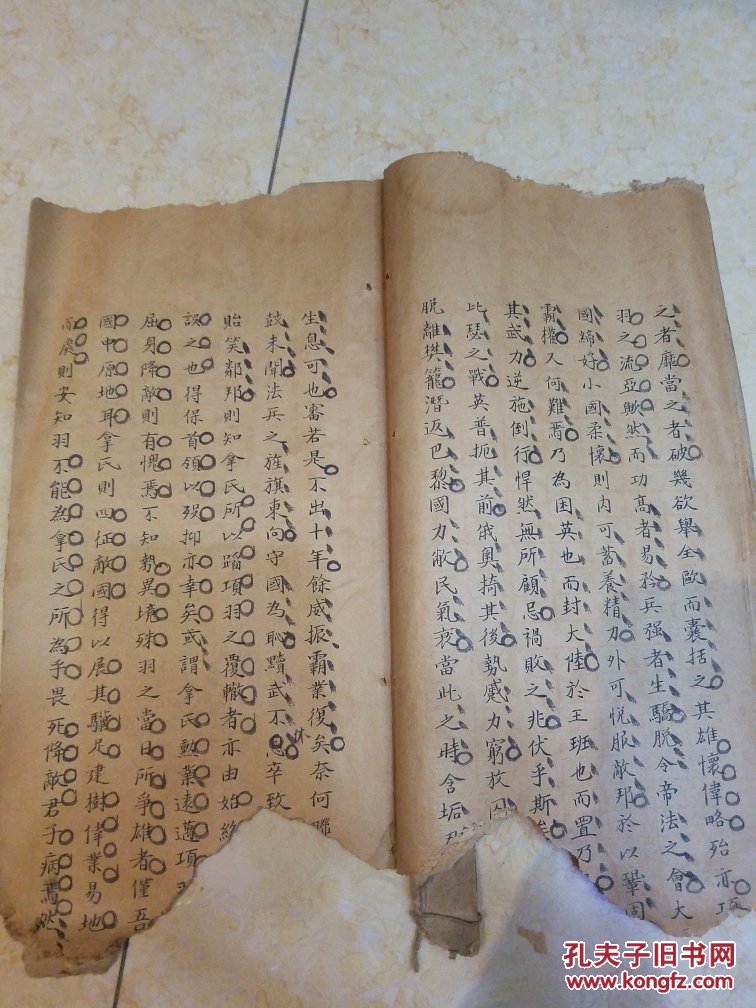 之者靡當之者破幾欲舉全歐而囊括之其雄懷偉略殆亦項
羽之流亞歟然而功高者易矜兵强者生驕脱令帝法之會大
國締好小國柔懷則内可蓄養精力外可悦服敵邦於以鞏固
霸權又何難焉乃為困英也而封大陸於王班也而置乃
其武力逆施倒行悍然無所顧忌禍敗之兆伏乎斯
比瑟之戰英普扼其前俄奥掎其後勢蹙力窮放囚
脱離樊籠潛返巴黎國力敝民氣衰當此之時含垢
生息可也審若是不出十年餘威振霸業復矣奈何聯
鼓未聞法兵之旌旗東向守國為恥黷武不休卒致
貽笑鄰邦則知拿氏所以蹈項羽之覆轍者亦由始終
誤之也得保首領以殁抑亦幸矣或謂拿氏勲業遠邁項羽
屈身降敵則有愧焉不知勢異境殊羽之當日所爭雄者僅吾
國中原地耳拿氏則四征敵國得以展其驥足建樹偉業易地
而處則安知羽不能為拿氏之所為乎畏死降敵君子病焉然
孔夫子旧书网
www.kongfz.com